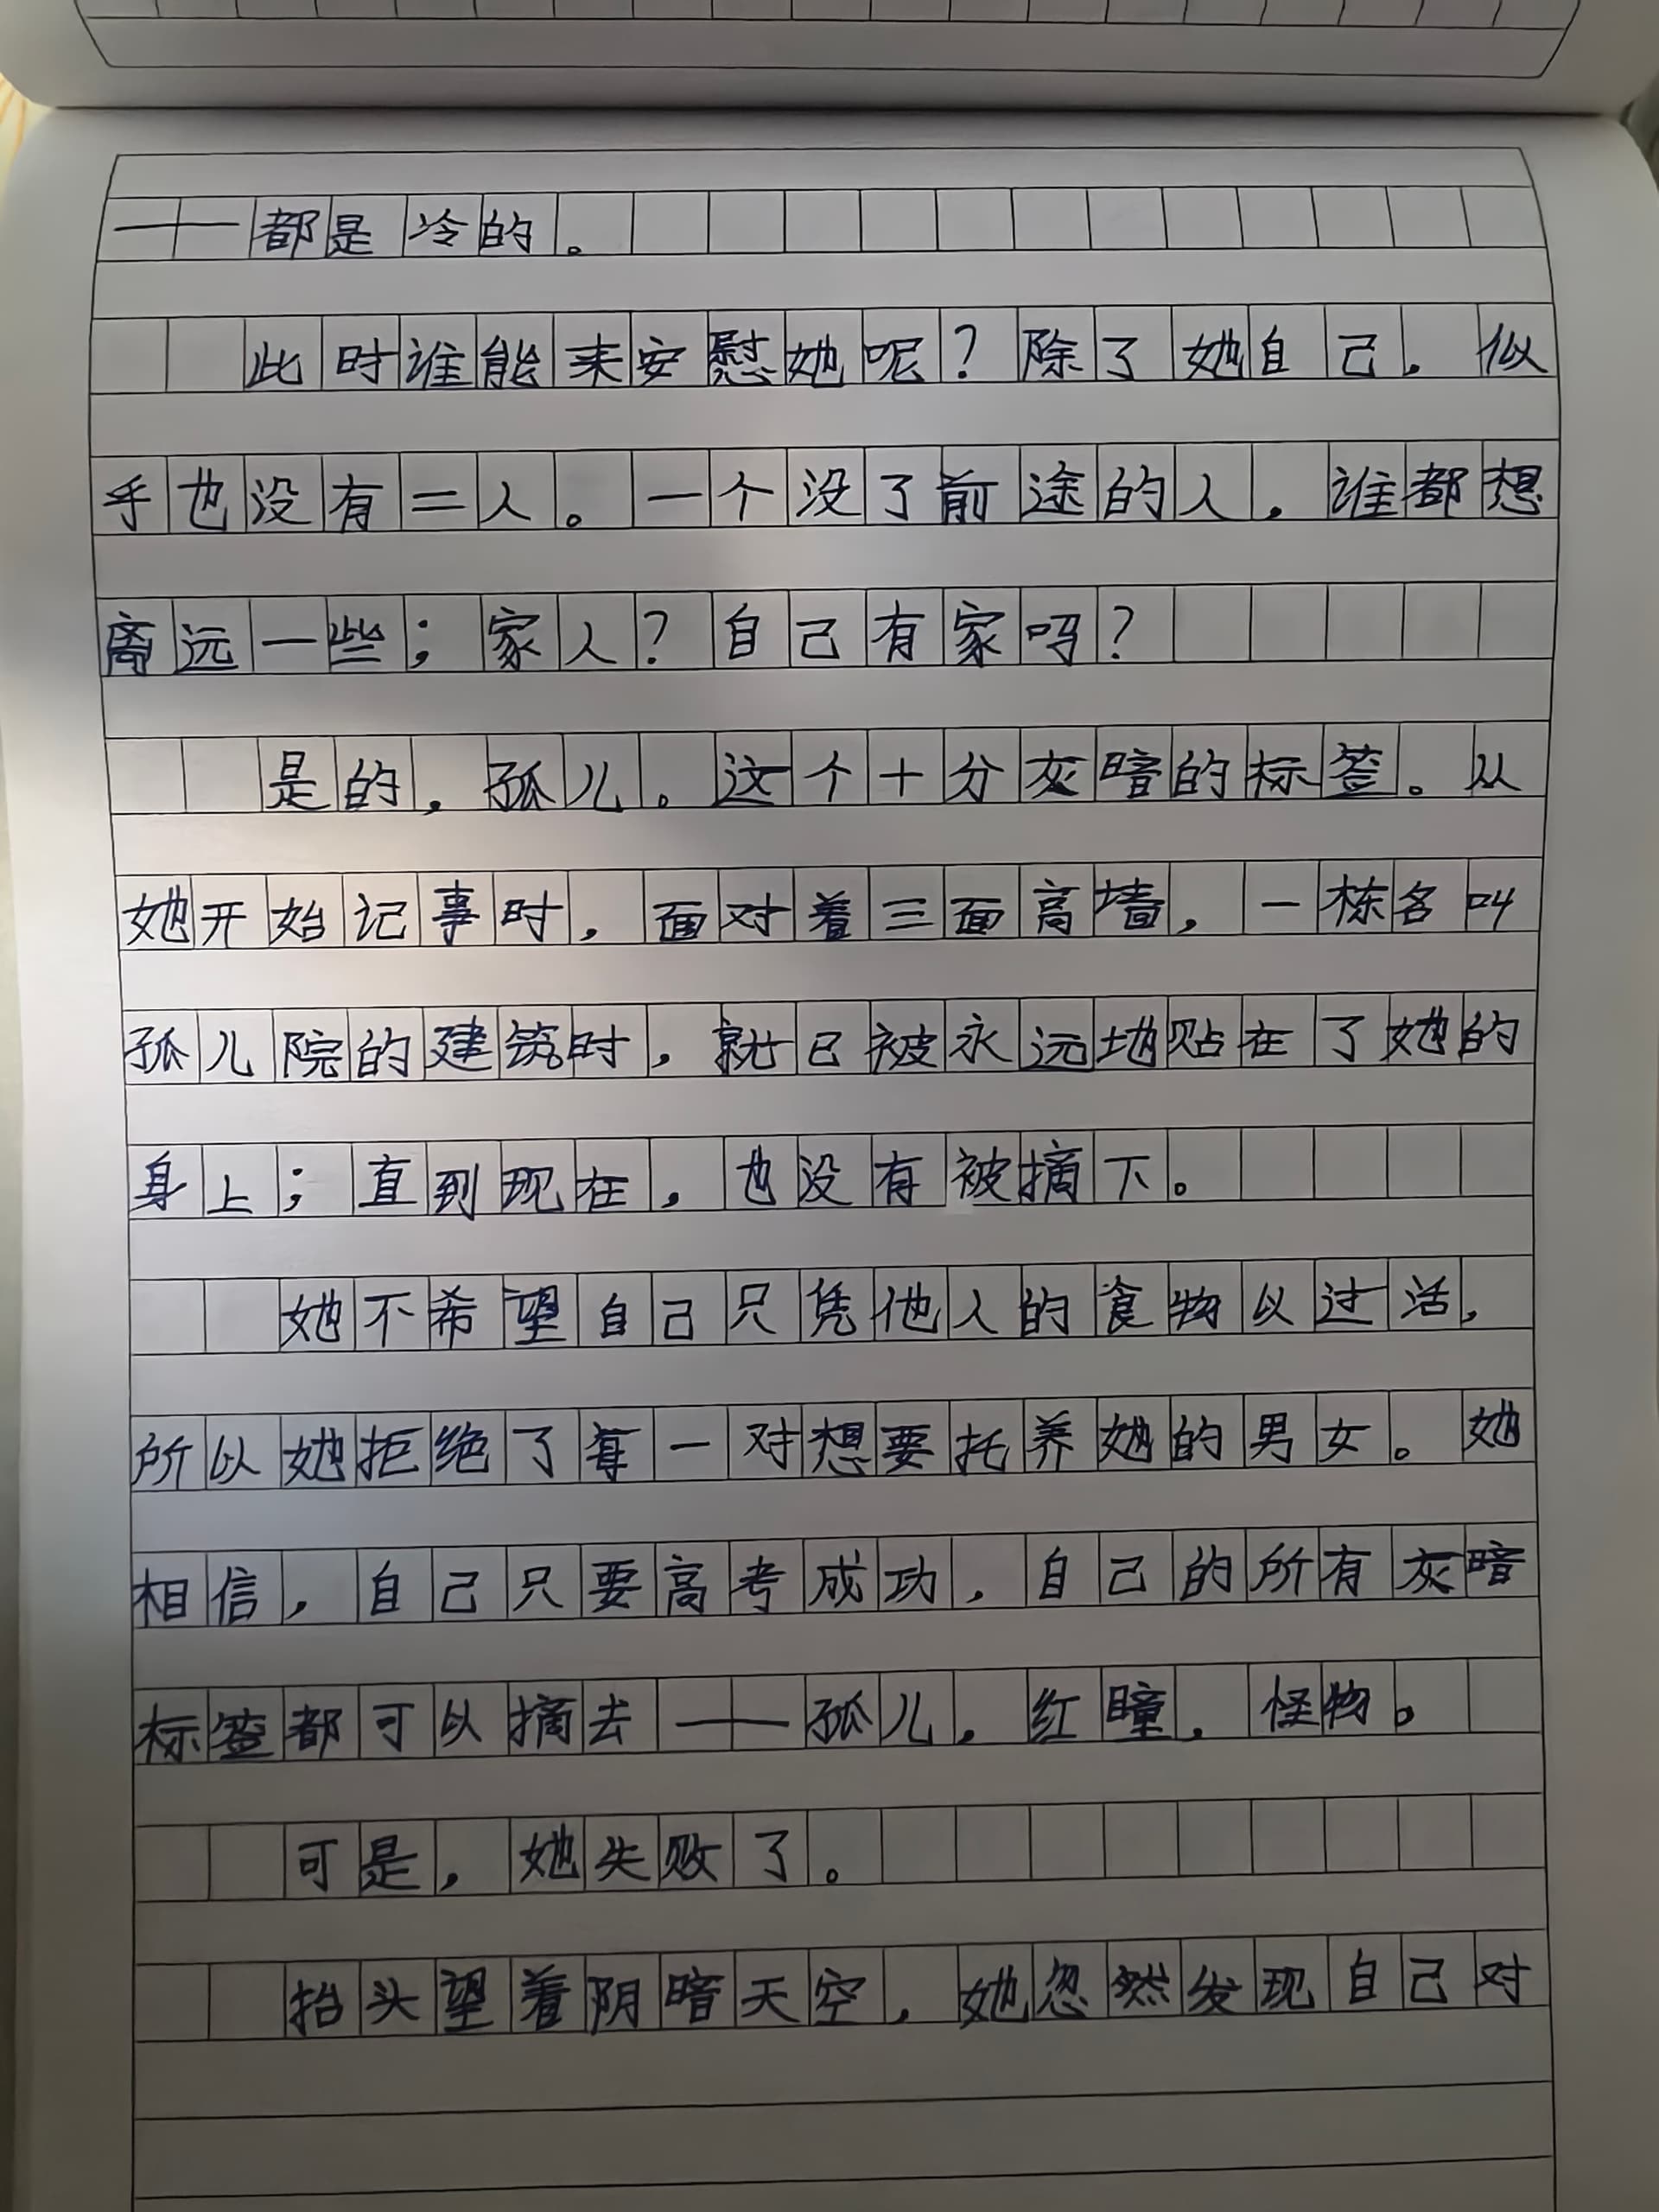 ——都是冷的。
此时谁能来安慰她呢？除了她自己，似
乎也没有二人。一个没了前途的人，谁都想
离远一些；家人？自己有家吗？
是的，孤儿。这个十分灰暗的标签。从
她开始记事时，面对着三面高墙，一栋名叫
孤儿院的建筑时，就已被永远地贴在了她的
身上；直到现在，也没有被摘下。
她不希望自己只凭他人的食物以过活，
所以她拒绝了每一对想要托养她的男女。她
相信，自己只要高考成功，自己的所有灰暗
标签都可以摘去——孤儿，红瞳，怪物。
可是，她失败了。
抬头望着阴暗天空，她忽然发现自己对